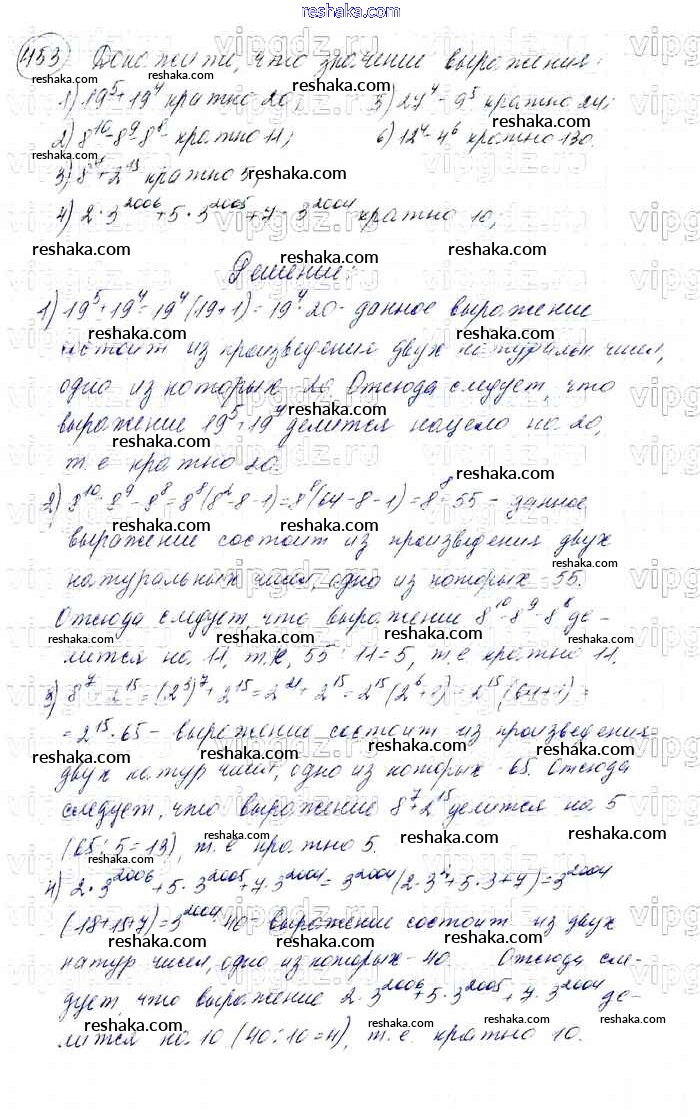 453) Докажите, что значение выражения:
1) 19⁵+19⁴ кратно 20; 5) 27⁴-9⁵ кратно 24;
2) 8¹⁰-8⁹-8⁸- кратно 11; 6) 12⁴-4⁶ кратно 130.
3) 8⁷+2¹⁵ кратно 5;
4) 2·3²⁰⁰⁶+5·3²⁰⁰⁵+7·3²⁰⁰⁴ кратно 10;
Решение:
1) 19⁵+19⁴=19⁴(19+1)=19⁴·20- данное выражение
состоит из произведения двух натуральн. чисел,
одно из которых 20. Отсюда следует, что
выражение 19⁵+19⁴ делится нацело на 20,
т.е кратно 20.
2) 8¹⁰-8⁹-8⁸=8⁸(8²-8-1)=8⁸(64-8-1)=8⁸·55 - данное
выражение состоит из произведения двух
натуральных чисел, одно из которых 55.
Отсюда следует, что выражение 8¹⁰-8⁹-8⁸ де-
лится на 11, т.к, 55:11=5, т.е кратно 11.
3) 8⁷+2¹⁵=(2³)⁷+2¹⁵=2²¹+2¹⁵=2¹⁵(2⁶+1)=2¹⁵(64+1)=
=2¹⁵·65- выражение состоит из произведения
двух натур чисел, одно из которых -65. Отсюда
следует, что выражение 8⁷+2¹⁵ делится на 5
(65:5=13), т.е кратно 5.
4) 2·3²⁰⁰⁶+5·3²⁰⁰⁵+7·3²⁰⁰⁴=3²⁰⁰⁴(2·3²+5·3+7)=3²⁰⁰⁴
(18+15+7)=3²⁰⁰⁴·40- выражение состоит из двух
натур чисел, одно из которых- 40 Отсюда сле-
дует, что выражение 2·3²⁰⁰⁶+5·3²⁰⁰⁵+7·3²⁰⁰⁴ де-
лится на 10 (40:10=4), т.е. кратно 10.